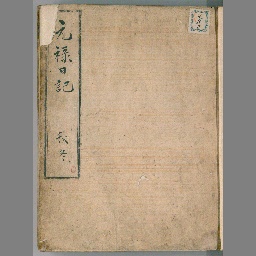 元禄日記
秋冬